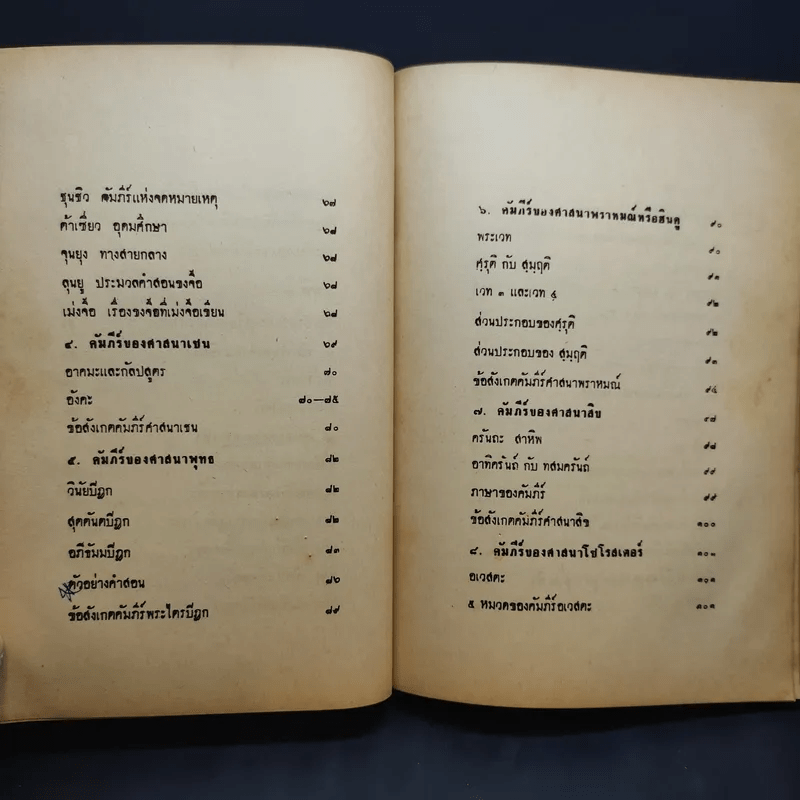 ชุนชิว คัมภีร์แห่งจดหมายเหตุ ๖๘
ต้าเซี่ยว อุดมศึกษา ๖๘
จุนยุง ทางสายกลาง ๖๘
ลุนยู ประมวลคำสอนขงจื๊อ ๖๘
เม่งจื๊อ เรื่องขงจื๊อที่เม่งจื๊อเขียน ๖๘
๔. คัมภีร์ของศาสนาเชน ๖๙
อาคมะและกัลปสูตร ๗๐
อังคะ ๗๐—๗๕
ข้อสังเกตคัมภีร์ศาสนาเชน ๘๐
๕. คัมภีร์ของศาสนาพุทธ ๘๒
วินัยปิฎก ๘๒
สุตตันตปิฎก ๘๒
อภิธัมมปิฎก ๘๓
ตัวอย่างคำสอน ๘๖
ข้อสังเกตคัมภีร์พระไตรปิฎก ๘๙
๖. คัมภีร์ของศาสนาพราหมณ์หรือฮินดู ๙๐
พระเวท ๙๐
ศฺรุติ กับ สฺมฺฤติ ๙๑
เวท ๓ และเวท ๔ ๙๒
ส่วนประกอบของศฺรุติ ๙๒
ส่วนประกอบของ สฺมฺฤติ ๙๓
ข้อสังเกตคัมภีร์ศาสนาพราหมณ์ ๙๔
๗. คัมภีร์ของศาสนาสิข ๙๘
ครันถะ สาหิพ ๙๘
อาทิครันถ์ กับ ทสมครันถ์ ๙๙
ภาษาของคัมภีร์ ๙๙
ข้อสังเกตคัมภีร์ศาสนาสิข ๑๐๐
๘. คัมภีร์ของศาสนาโซโรสเตอร์ ๑๐๑
อเวสตะ ๑๐๑
๕ หมวดของคัมภีร์อเวสตะ ๑๐๑